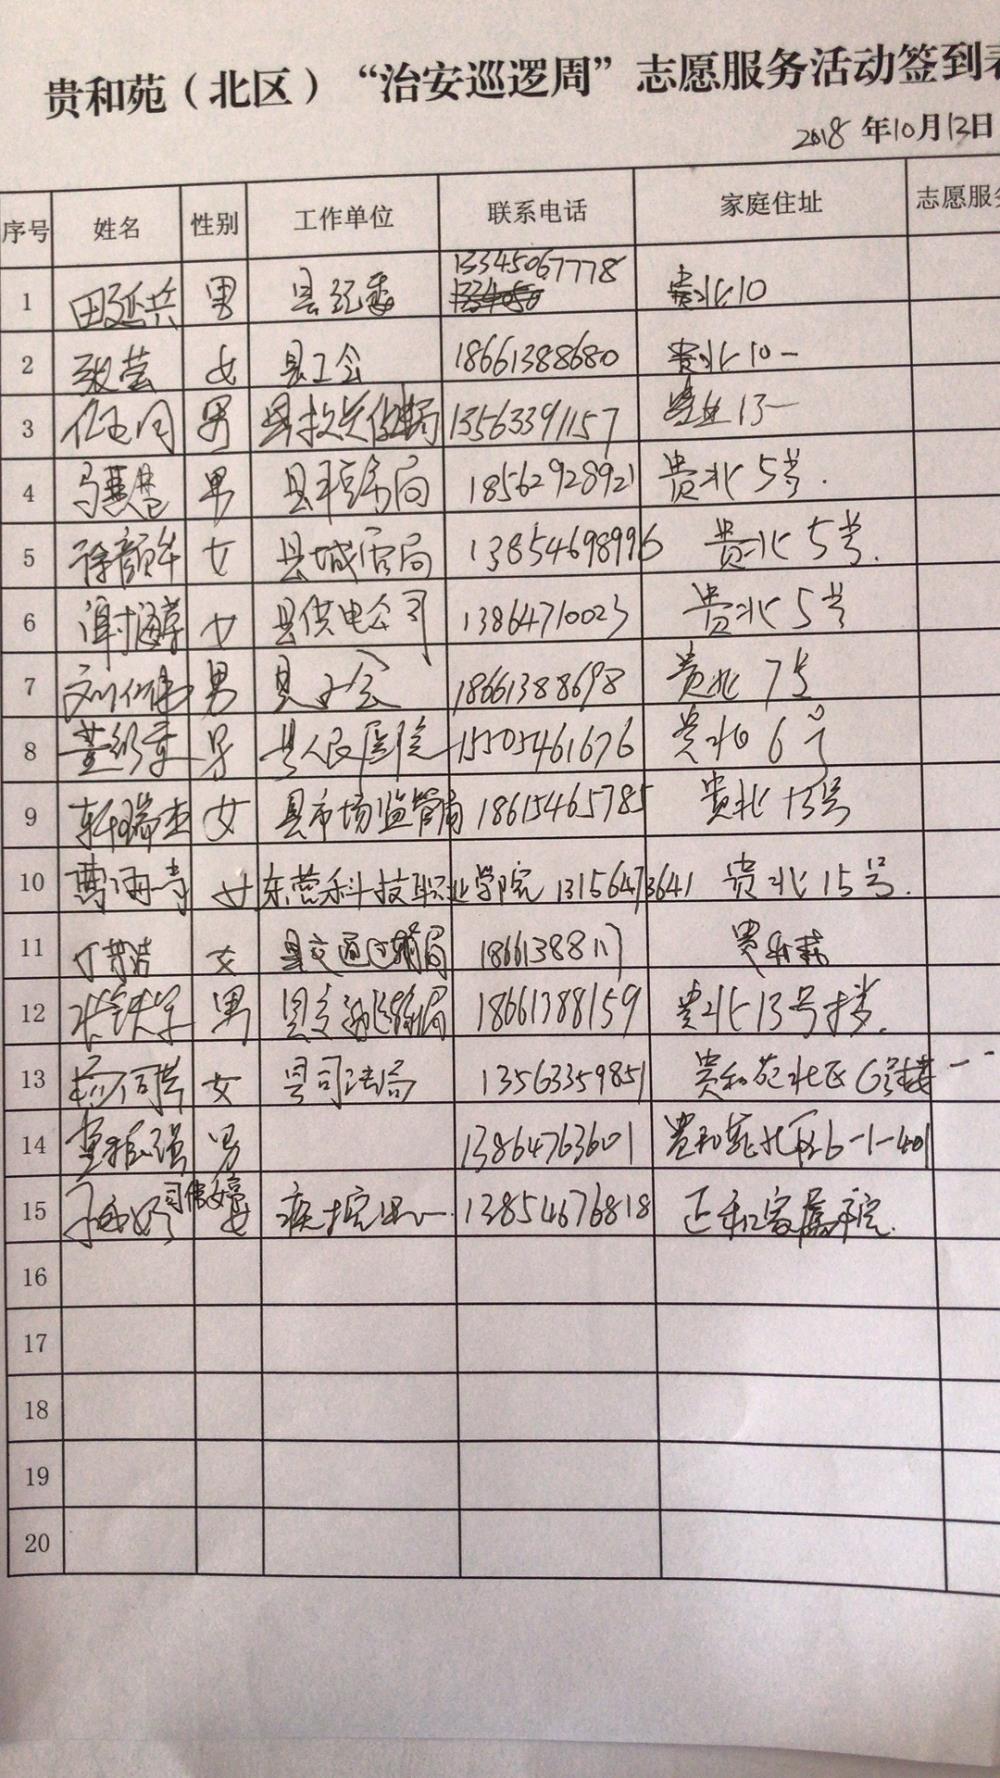 贵和苑（北区）“治安巡逻周”志愿服务活动签到表
2018 年10月12日
序号 姓名 性别 工作单位 联系电话 家庭住址 志愿服务
1 田延兵 男 县纪委 13345067778 贵北10
2 张莹 女 县工会 18661388680 贵北10一
3 男 13563391157 贵北13一
4 男 县税务局 18562928921 贵北5号.
5 徐 女 县城管局 13854698996 贵北5号.
6 谢海萍 女 县供电公司 13864710023 贵北5号
7 刘伟 男 县工会 18661388698 贵北7号
8 董 男 县人民医院 15505461676 贵北6号
9 女 县市场监管局 18615465785 贵北13号
10 女 东营科技职业学院 13156473641 贵北15号.
11 女 县交通运输局 1866138811
12 张铁军 男 县交通运输局 18661388159 贵北13号楼.
13 女 县司法局 13563359851 贵和苑北区6号楼一
14 董 强 男 13864763601 贵和苑北区6-1-401
15 女 疾控中心 13854676818 正和家属院.
16
17
18
19
20